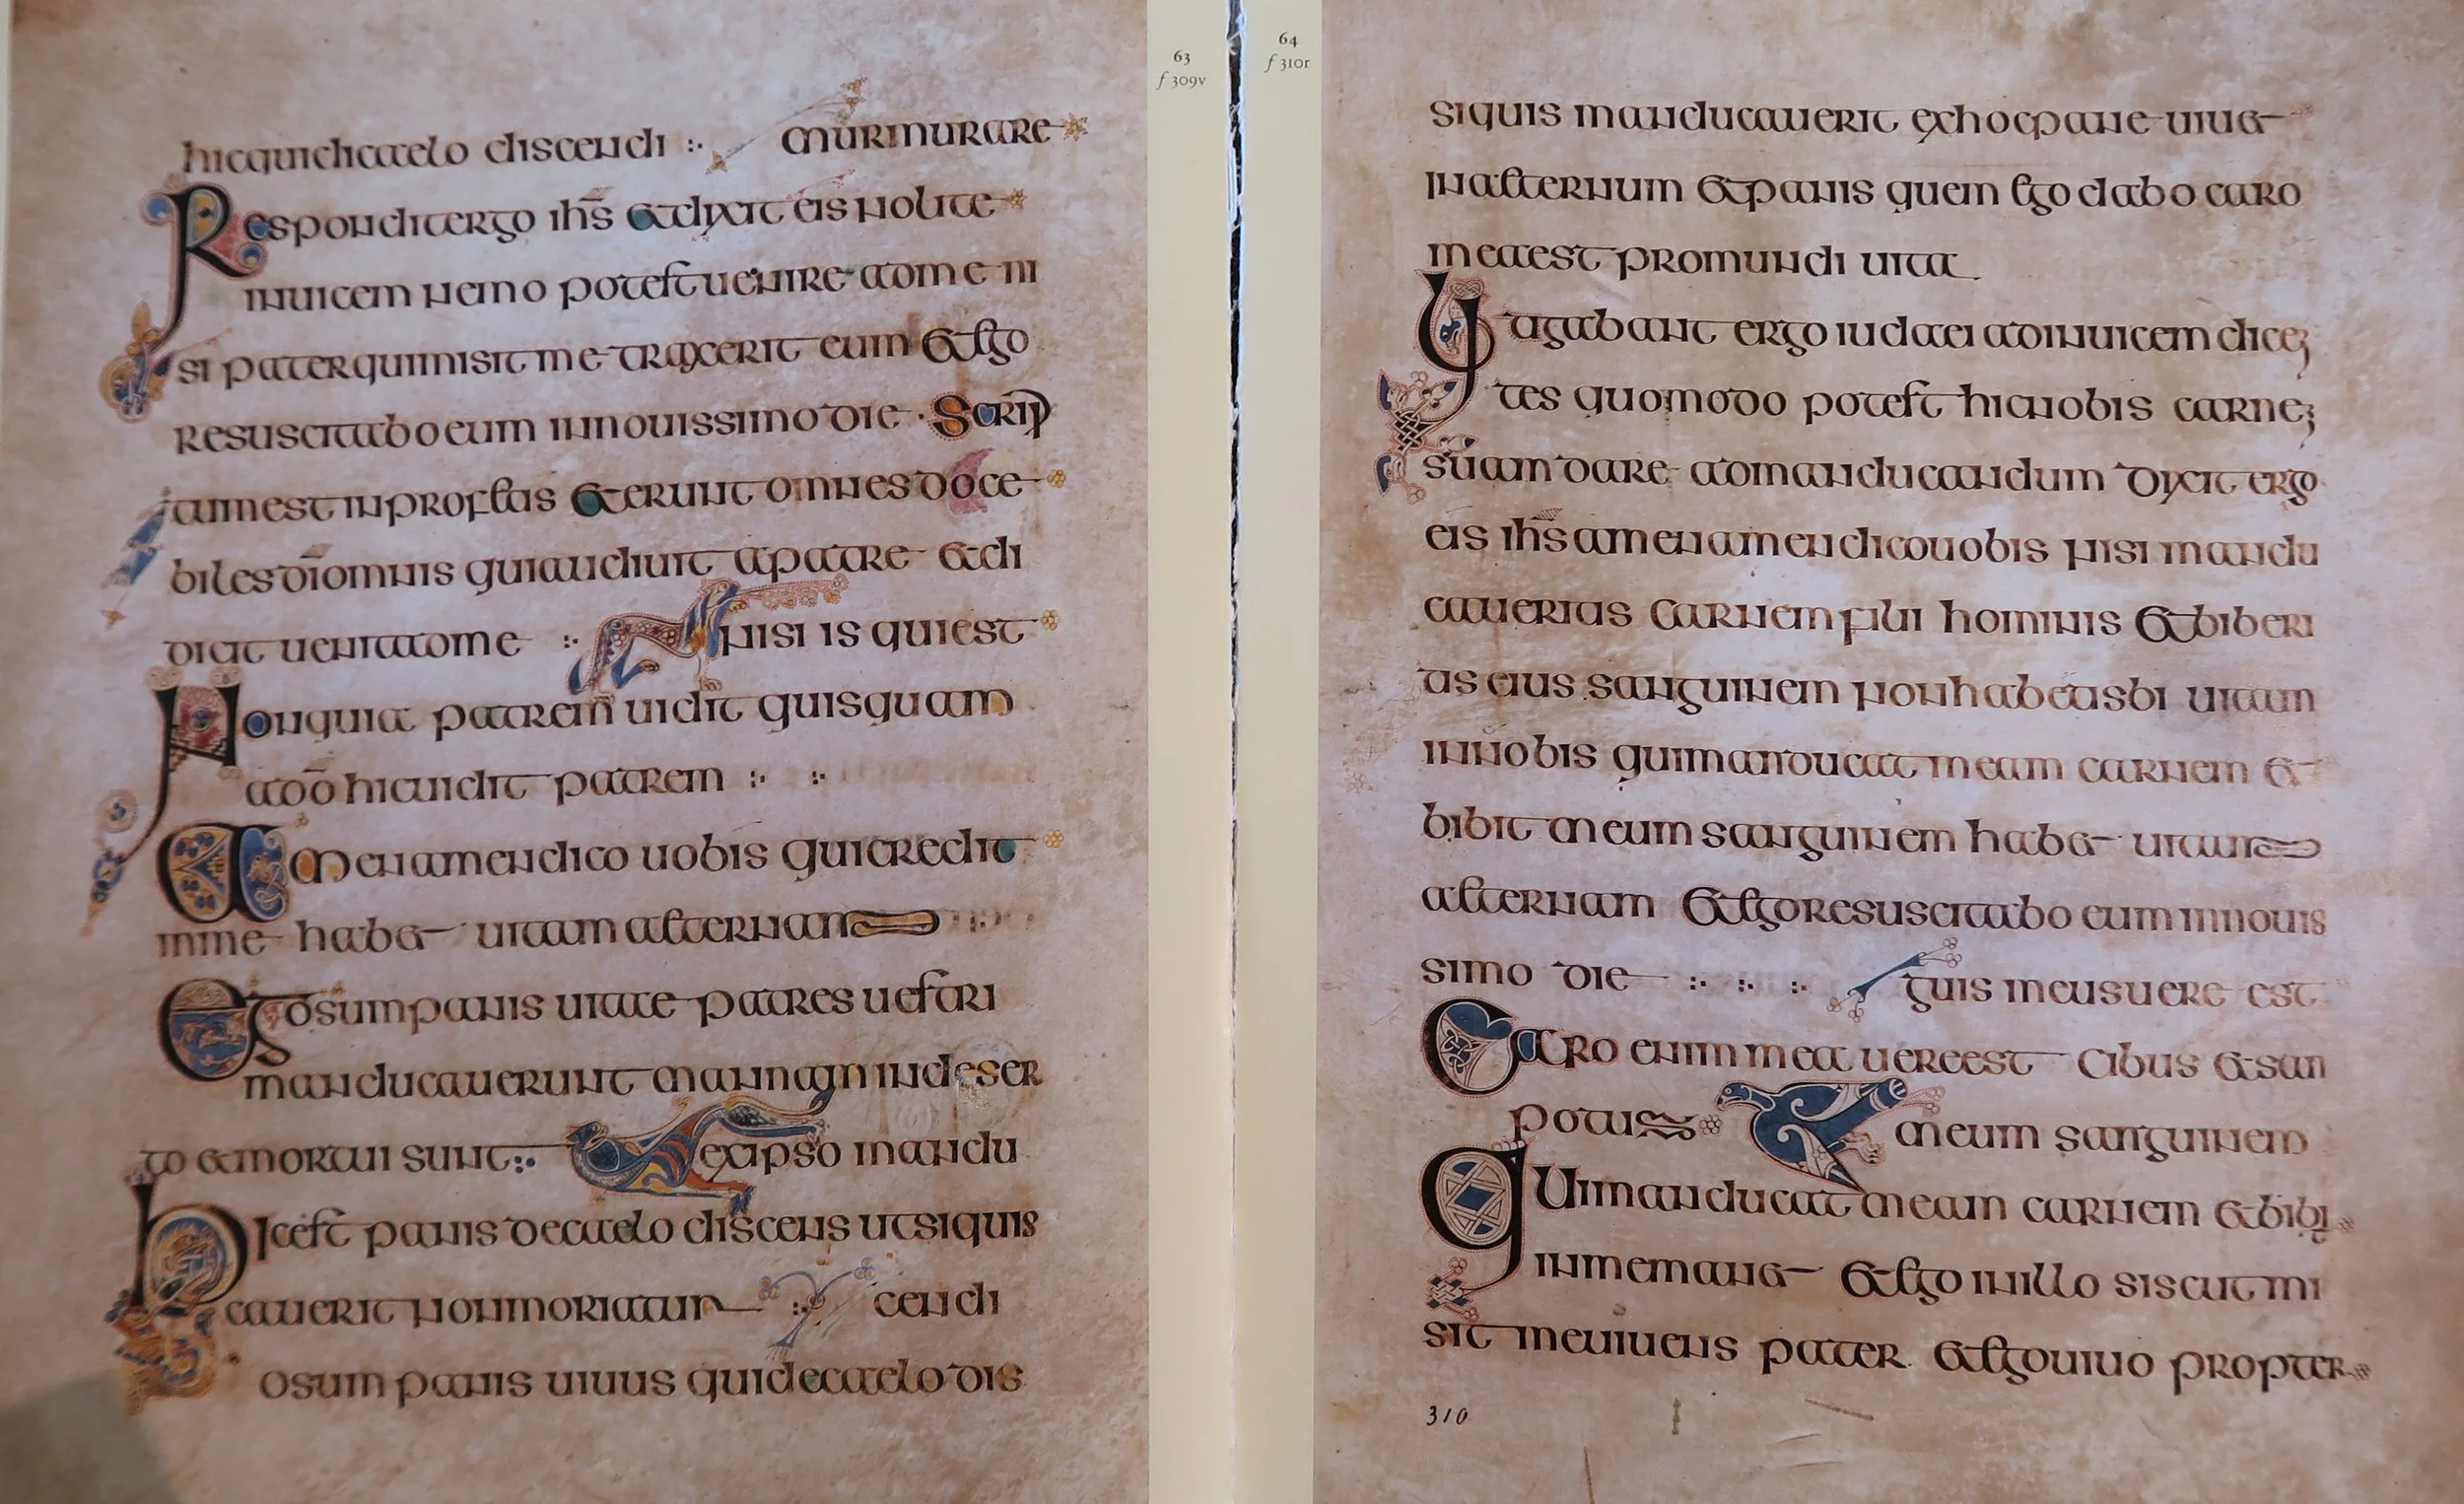 63
f 309v
hicquidicaelo discendi :· murmurare
Respondit ergo ihs et dixit eis nolite
inuicem nemo potest uenire adme ni
si pater qui misit me traxerit eum et ego
resuscitabo eum in nouissimo die · Scrip
tum est in profetis et erunt omnes doce
biles di omnis qui audiuit a patre et di
dicit uenit adme :· nisi is qui est
Non quia patrem uidit quisquam
ado hic uidit patrem :· :·
Amen amen dico uobis qui credit
in me habet uitam aeternam
Ego sum panis uitae patres uestri
manducauerunt mannam in deser
to et mortui sunt :· ex ipso mandu
Hic est panis de caelo discens ut si quis
cauerit non moriatur :· cendi
osum panis uiuus qui de caelo dis
64
f 310r
siquis manducauerit ex hoc pane uiuet
in aeternum et panis quem ego dabo caro
mea est pro mundi uita
Litagabant ergo iudaei ad inuicem dicen
tes quomodo potest hic nobis carnem
suam dare ad manducandum dixit ergo
eis ihs amen amen dico uobis nisi mandu
caueritis carnem fili hominis et biberi
tis eius sanguinem non habebitis uitam
in uobis qui manducat meam carnem et
bibit meum sanguinem habet uitam
aeternam et ego resuscitabo eum in nouis
simo die :· :· :· guis meus uere est
Caro enim mea uere est cibus et san
potus meum sanguinem
Qui manducat meam carnem et bibit
in me manet et ego in illo sicut mi
sit me uiuens pater et ego uiuo propter
310